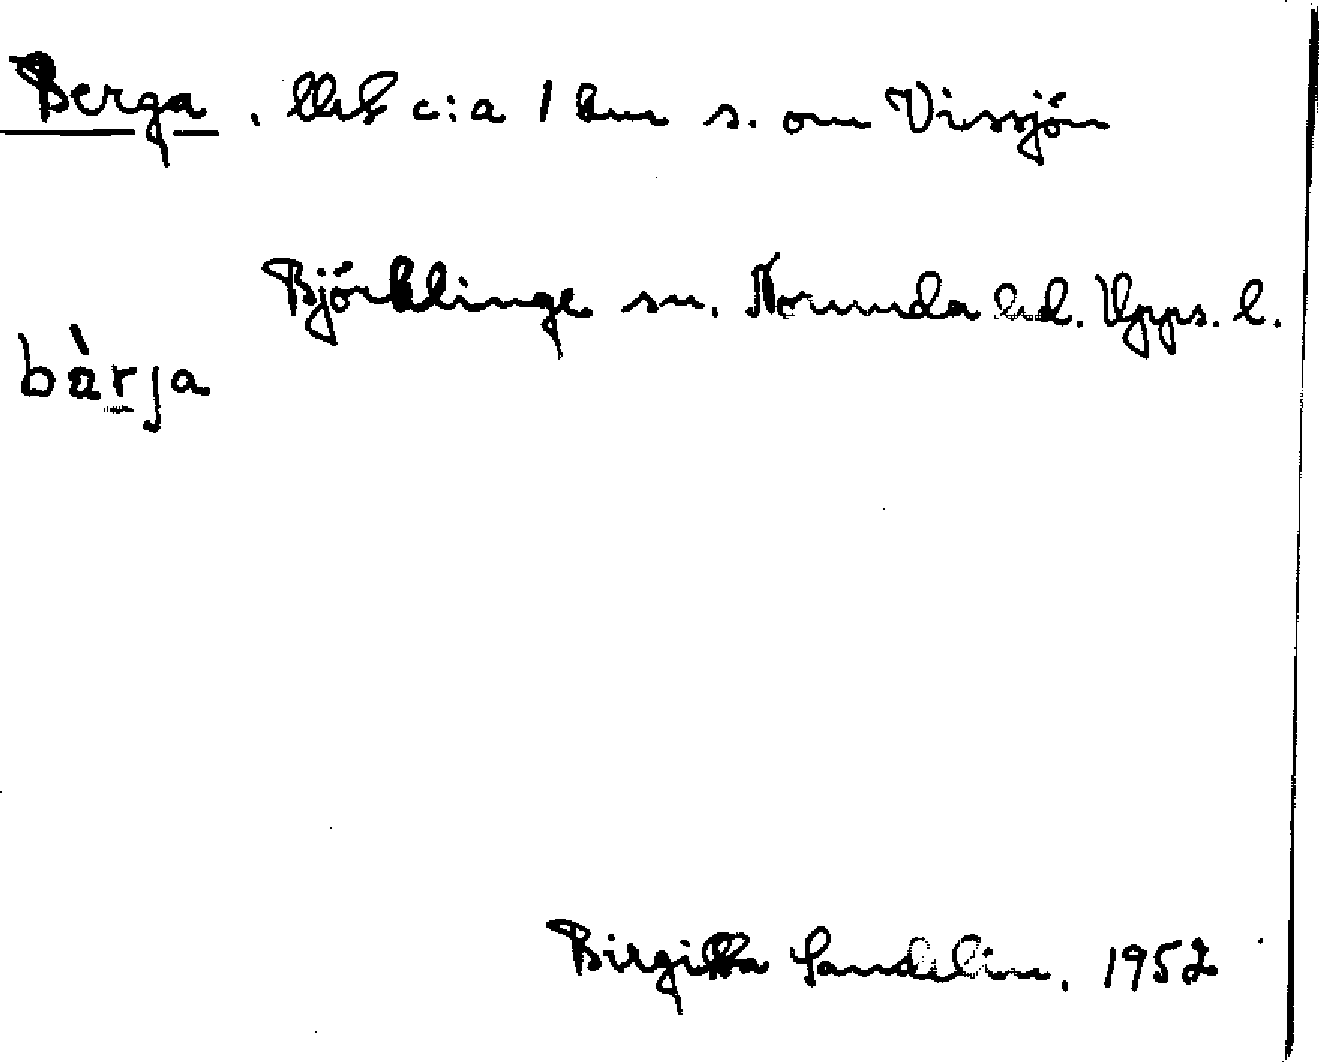 Berga. Utj c:a 1 km s. om Vissjön
Björklinge sn. Norunda hd. Upps. l.
bàrja
Birgitta Sandelin. 1952